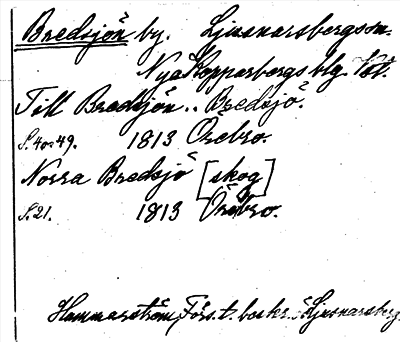 Bredsjön by. Ljusnarsbergs sn.
Nya Kopparbergs blg.
Till Bredsjön.. Bredsjö.
S. 40-49. 1813 Örebro.
Norra Bredsjö [skog]
S. 21. 1813 Örebro.
Hammarström, Förs. t. beskr. ö. Ljusnarsberg.